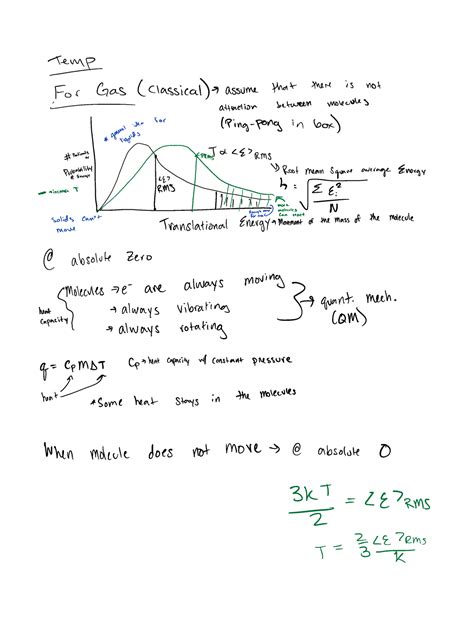 Temp
For Gas (classical) → assume that there is not
attraction between molecules
(Ping-pong in box)
* general idea for
liquids
T ∝ <ε>RMS
# Molecules
or
Probability
<ε>
RMS
→ Root mean square average Energy
= √(Σ εi² / N)
- increase T
Solids can't
move
Translational Energy → Movement of the mass of the molecule
@ absolute zero
Molecules → e⁻ are always moving
→ always vibrating
→ always rotating
heat
capacity
→ quant. mech.
(QM)
q = Cp m ΔT Cp → heat capacity w/ constant pressure
heat
* Some heat stays in the molecules
When molecule does not move → @ absolute 0
3kT/2 = <ε>RMS
T = 2/3 <ε>RMS/k